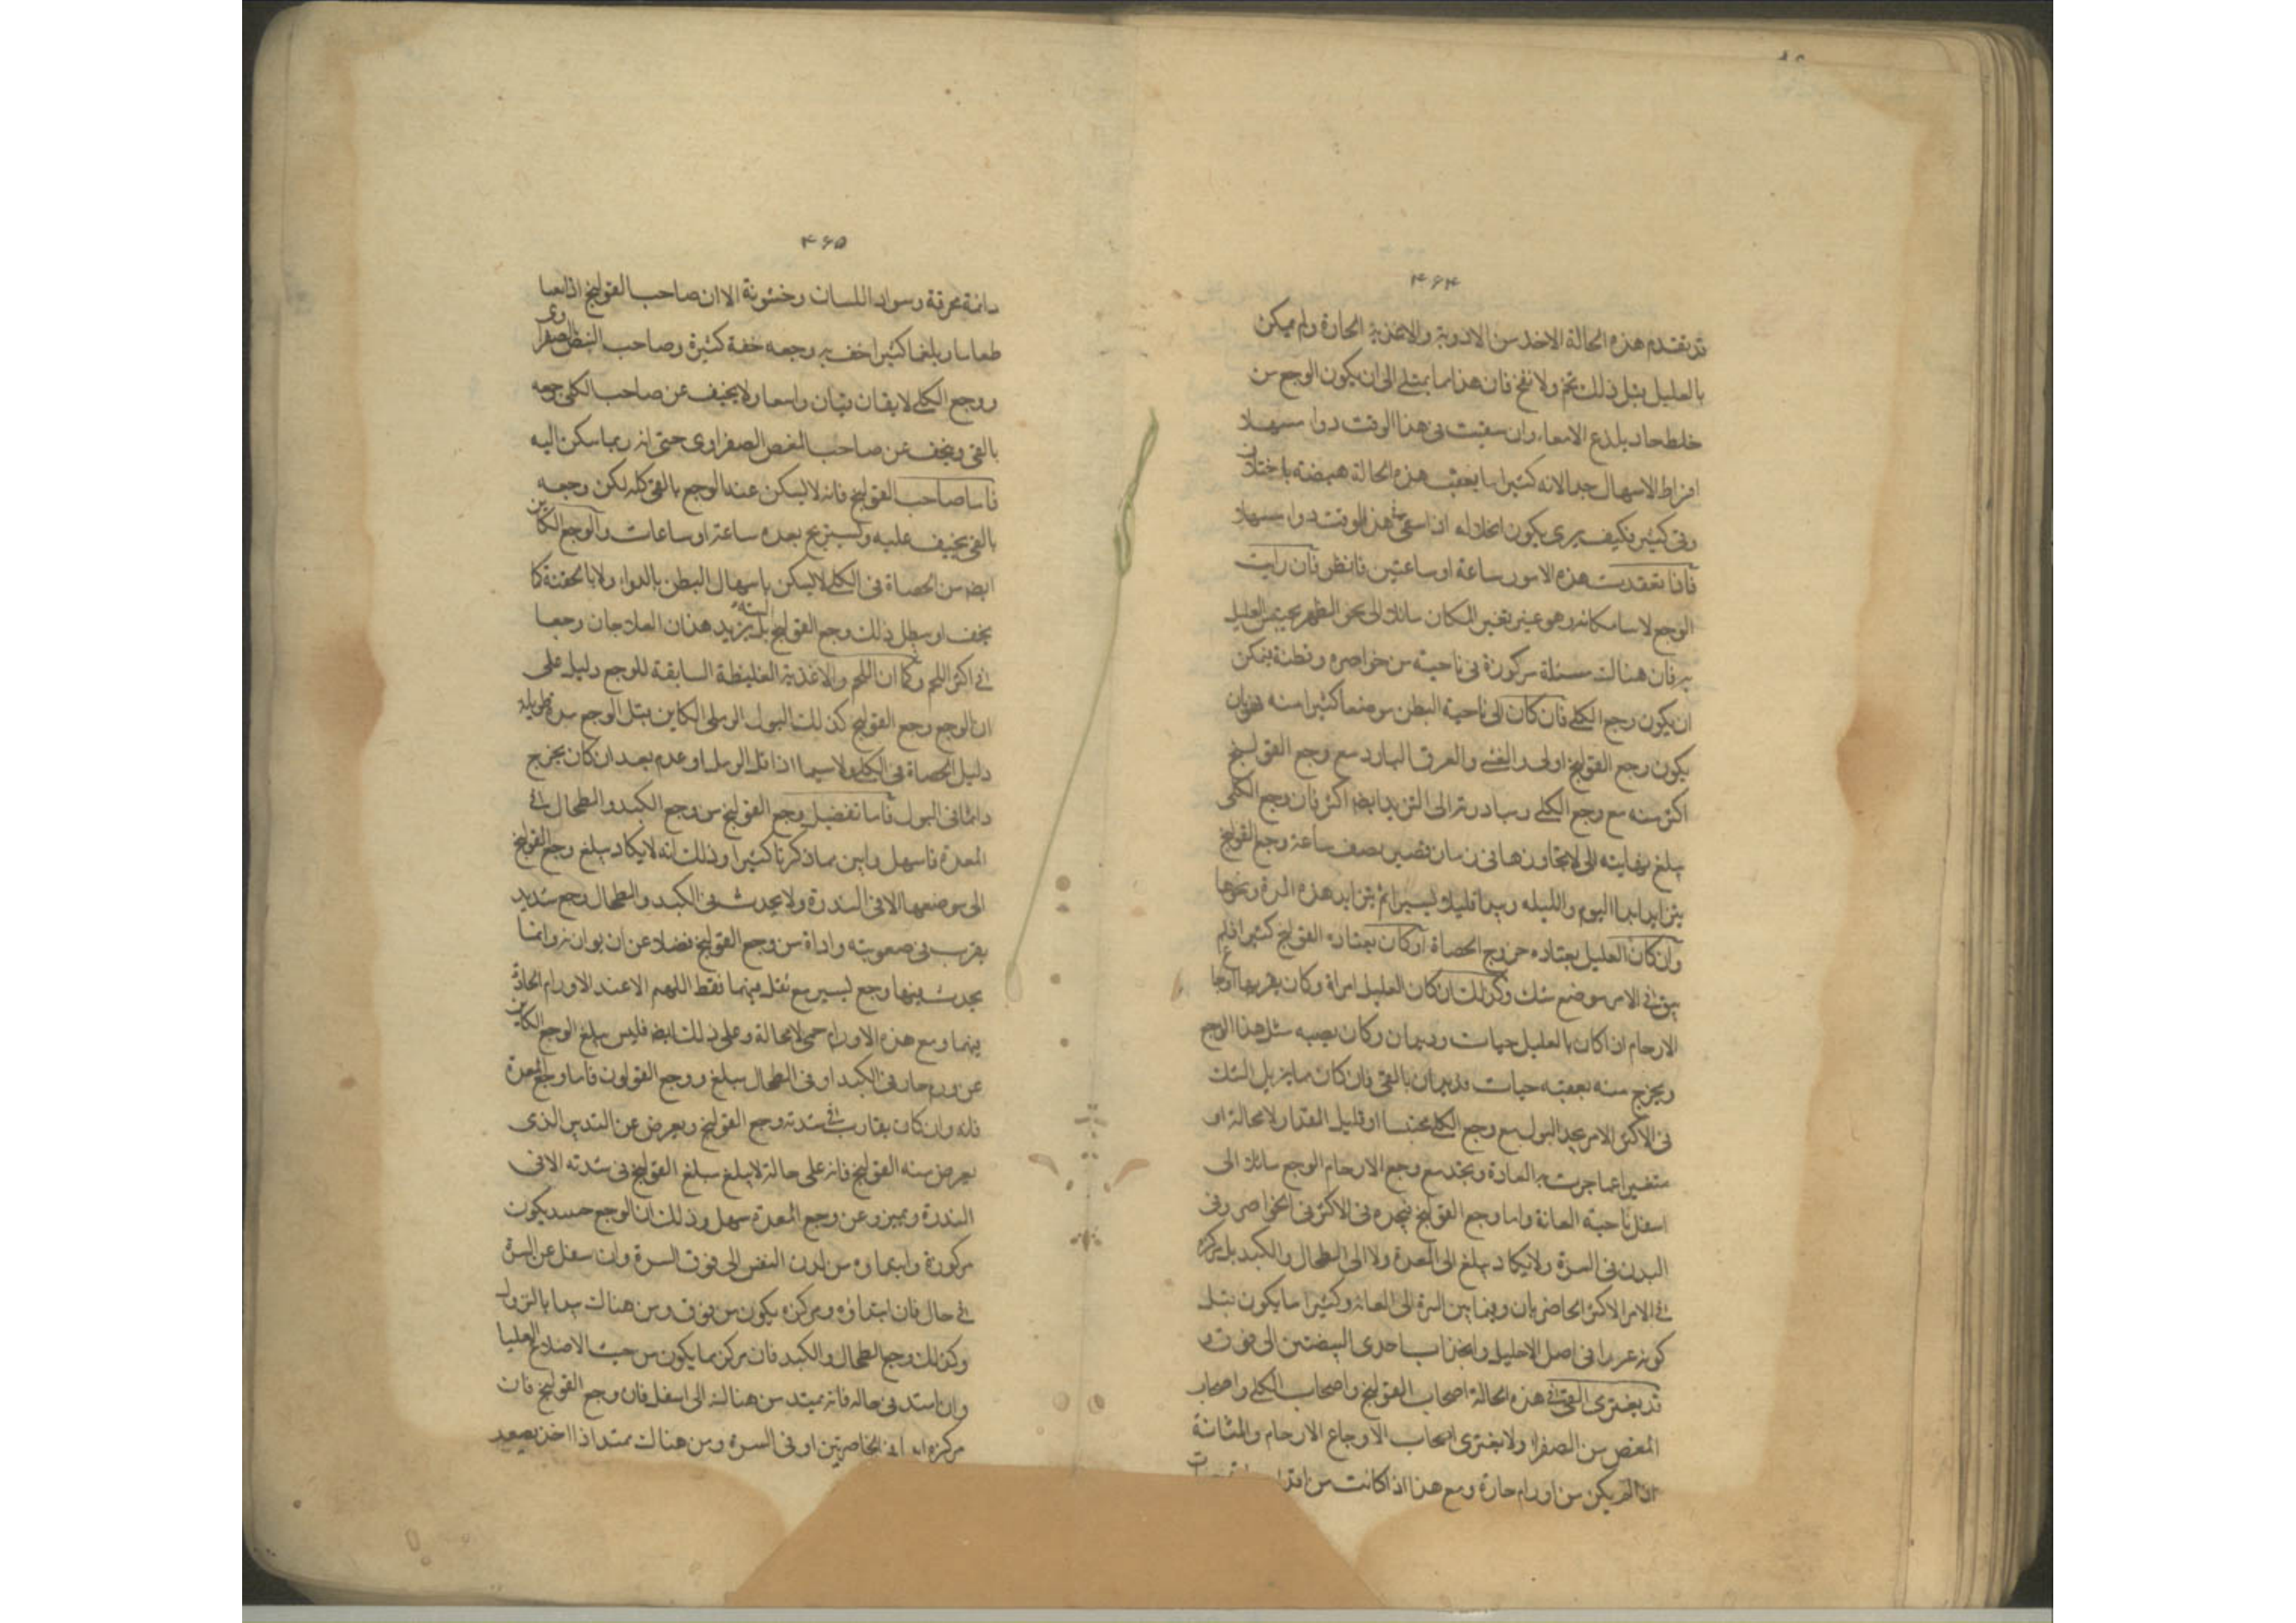 ۴۶۴
قد تقدم هذه الحالة الاخذ من الادوية والاغذية الحارة ولم يمكن
بالعليل قبل ذلك تخم ولا نفخ فان هذا مما يمثلے الى ان يكون الوجع من
خلط حاد يلذع الامعاء وان سقيت فى هذا الوقت دواء مسهلا
افراط الاسهال جدا لانه كثيرا ما يعقب هذه الحالة هيضة باختلاف
وقى كثير فكيف يرى يكون انحلاله اذا سقى هذا الوقت دواء مسهلا
فاذا تفقدت هذه الامور ساعة او ساعتين فانظر فان رايت
الوجع لاسا مكانه وهو عينر تغير المكان مائلا الى نحو الظهر
به فان هنالك مسئلة مركوزة فى ناحية من خواصره وقطنه يمكن
ان يكون وجع الكلے فان كان الى ناحية البطن موضعا كثيرا منه
يكون وجع القولنج اولى والعرق البارد مع وجع القولنج
اكثر منه مع وجع الكلے ومبادرته الى التزيد ايضا اكثر فان وجع الكلى
يبلغ نهايته التى لا يتجاوزها فى زمان قصير نصف ساعة ووجع القولنج
يتزايد ابدا اليوم والليلة ويبدا قليلا يسيرا ثم يتزايد هذه المرة ونحوها
وان كان العليل يعتاده خروج الحصاة او كان يعتاده القولنج كثيرا فلم
يبق فى الامر موضع شك وكذلك ان كان العليل امراة وكان
الارحام اذا كان بالعليل حيات وديدان وكان يصيبه مثل هذا الوجع
ويخرج منه بعقبه حيات وديدان بالقى فان كان مما يزيل الشك
فى الاكثر الامر يجد البول مع وجع الكلے محتبسا او قليل المقدار ولا محالة او
متغيرا عما جرت به العادة وتجد مع وجع الارحام الوجع مائلا الى
اسفل ناحية العانة واما وجع القولنج فتجده فى الاكثر فى الخواصر وفى
البدن فى السرة ولا يكاد يبلغ الى المعدة ولا الى الطحال والكبد بل مركزه
فى الامر الاكثر الخاصرتان وفيما بين السرة الى العانة وكثيرا ما يكون قبل
كونه عررا فى اصل الاحليل وانجذاب باحدى البيضتين الى فوق و
قد يعترى القى فى هذه الحالة اصحاب القولنج واصحاب الكلے واصحاب
المغص من الصفرا ولا يعترى اصحاب الاوجاع الارحام والمثانة
اذا لم يكن من اورام حارة ومع هذا اذا كانت من
۴۶۵
دائمة محرقة وسواد اللسان وخشونة الا ان صاحب القولنج اذا تقيا
طعاما وبلغما كثيرا خف به وجعه خفة كثيرة وصاحب المغص الصفراوى
ووجع الكلے لا يقان ولا يخفف عن صاحب الكلى وجعه
بالقى ويخف عن صاحب المغص الصفراوى حتى انه ربما سكن اليه
فاما صاحب القولنج فانه لا يسكن عنه الوجع بالقى كله لكن وجعه
بالقى يخفف عليه ويستريح بعده ساعة او ساعات والوجع الكاين
ايضا من الحصاة فى الكلے لا يسكن باسهال البطن بالدواء ولا بالحقنة كما
يخف او يبطل ذلك وجع القولنج بل يزيد هذان العلاجان وجعا
فى اكثر اللحم وكما ان التخم والاغذية الغليظة السابقة للوجع دليل على
ان الوجع وجع القولنج كذلك البول الرملى الكاين قبل الوجع مدة طويلة
دليل الحصاة فى الكلے ولا سيما اذا قل الرمل او عدم بعد ان كان يخرج
دائما فى البول فاما تفصيل وجع القولنج من وجع الكبد والطحال فى
المعدة فاسهل وابين مما ذكرنا كثيرا وذلك انه لا يكاد يبلغ وجع القولنج
الى موضعها الا فى الندرة ولا يحدث فى الكبد والطحال وجع شديد
يقرب فى صعوبته واذاه من وجع القولنج فضلا عن ان يوازنه وانما
يحدث فيها وجع يسير مع ثقل فيهما فقط اللهم الا عند الاورام الحادة
فيهما ومع هذه الاورام حمى لا محالة وعلى ذلك ايضا فليس يبلغ الوجع الكاين
عن ورم حار فى الكبد او فى الطحال مبلغ ووجع القولون فاما وجع المعدة
فانه وان كان يقارب فى شدته وجع القولنج ويعرض عن التدبير الذى
يعرض منه القولنج فانه على حالة لا يبلغ مبلغ القولنج فى شدته الا فى
الندرة وعن وجع المعدة سهل وذلك ان الوجع يكون
مركوزة وابتداوه من لدن القص الى فوق السرة وان سفل عن السرة
فى حال فان ابتداؤه ومركزه يكون من فوق ومن هنالك يبدا بالنزول
وكذلك وجع الطحال والكبد فان مركزهما يكون من حيث الاضلاع العليا
وان امتد فى حاله فانه يمتد من هنالك الى اسفل فان وجع القولنج فان
مركزه فى الخاصرتين او فى السرة ومن هنالك يمتد اذا اخذ يصعد